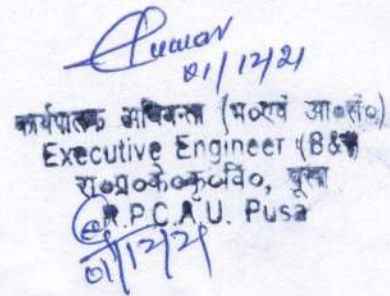 01/12/21
कार्यपालक अभियन्ता (भ०एवं आ०सं०)
Executive Engineer (B&
रा०प्र०के०कृ०वि०, पूसा
R.P.C.A.U. Pusa
01/12/21